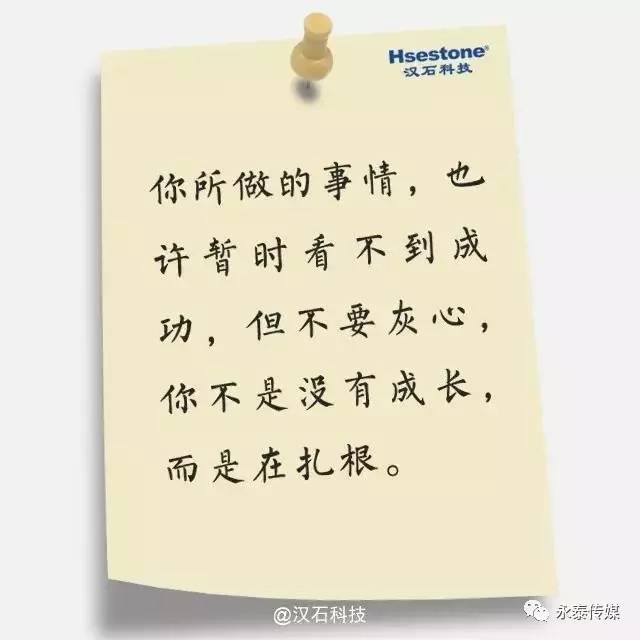 Hsestone®
汉石科技
你所做的事情，也
许暂时看不到成
功，但不要灰心，
你不是没有成长，
而是在扎根。
@汉石科技
永泰传媒